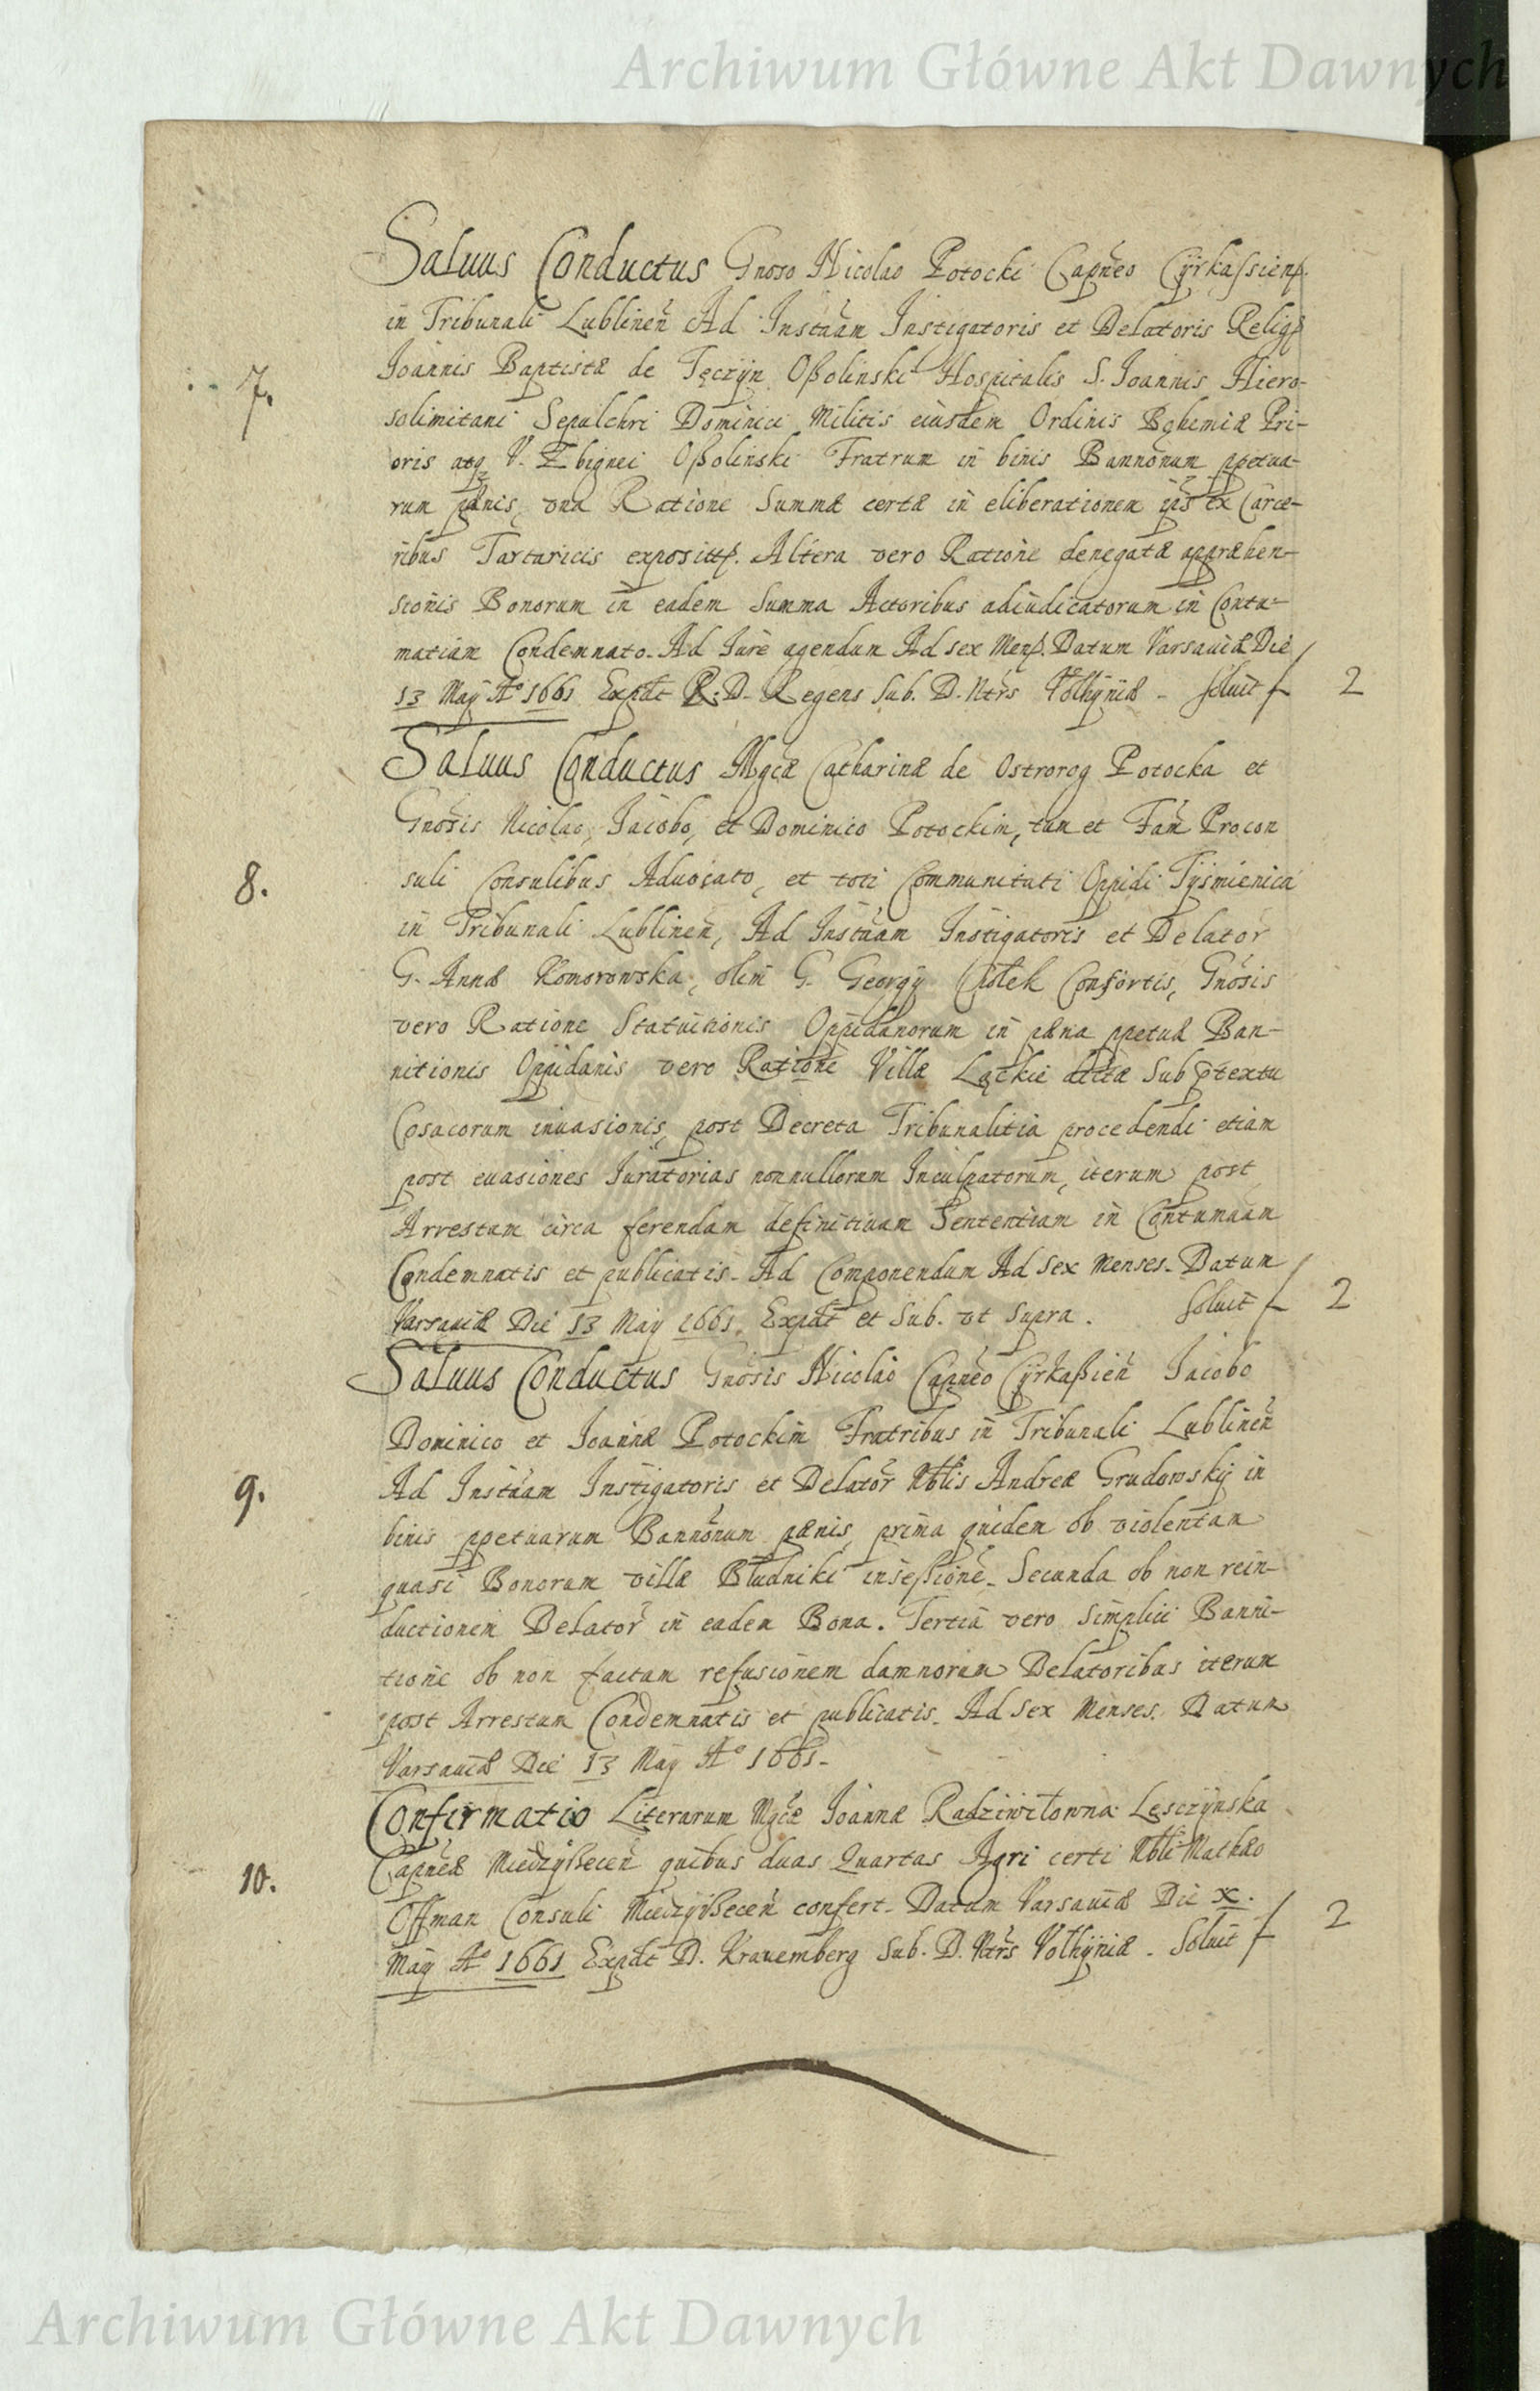 Archiwum Główne Akt Dawnych
Saluus Conductus Gnoso Nicolao Potocki Capneo Cyrkassiens.
in Tribunali Lublinen Ad Instnam Instigatoris et Delatoris Religs
7.
Joannis Baptistæ de Tęczyn Oßolinski Hospitalis S. Joannis Hiero-
solimitani Sepulchri Dominici Militis eiusdem Ordinis Bohemiæ Pri-
oris atq V. Zbignei Oßolinski Fratrum in binis Bannonum ppetua-
rum pænis, una Ratione Summæ certæ in eliberationem ips ex Carce-
ribus Tartaricis exposit. Altera vero Ratione denegatæ appræhen-
sionis Bonorum in eadem Summa Actoribus adiudicatorum in Contu-
matiam Condemnato. Ad Jure agendum Ad sex Mens. Datum Varsauiæ Die
13 Maÿ Aº 1661 Expdt R. D. Regens Sub. D. Ntrs Volhÿniæ - soluit f 2
Saluus Conductus Mgcæ Catharinæ de Ostrorog Potocka et
Gnosis Nicolao, Jacobo, et Dominico Potockim, tum et Fam Procon
8.
suli Consulibus Aduocato, et toti Communitati Oppidi Tÿsmienica
in Tribunali Lublinen, Ad Instnam Instigatoris et Delator
G. Annæ Komorowska, olim G. Georgÿ Ciołek Consortis, Gnosis
vero Ratione Statuitionis Oppidanorum in pæna ppetuæ Ban-
nitionis Oppidanis vero Ratione Villæ Łąckie dictæ Sub ptextu
Cosacorum inuasionis, post Decreta Tribunalitia procedendi etiam
post euasiones Juratorias nonnullorum Inculpatorum, iterum post
Arrestum circa ferendam definitiuam Sententiam in Contumaam
Condemnatis et publicatis. Ad Componendum Ad sex Menses. Datum
Varsauiæ Die 13 Maÿ 1661. Expdt et Sub. vt Supra. Soluit f 2
Saluus Conductus Gnosis Nicolao Capneo Cÿrkaßien Jacobo
Dominico et Joannæ Potockim Fratribus in Tribunali Lublinen
9.
Ad Instnam Instigatoris et Delator Nblis Andreæ Grudowskÿ in
binis ppetuarum Bannonum pænis, prima quidem ob violentam
quasi Bonorum villæ Błudniki inseßione. Secunda ob non rein-
ductionem Delator in eadem Bona. Tertia vero simplici Banni-
tione ob non factam refusionem damnorum Delatoribus iterum
post Arrestum Condemnatis et publicatis. Ad sex Menses. Datum
Varsauiæ Die 13 Maÿ Aº 1661.
Confirmatio Literarum Mgcæ Joannæ Radziwiłowna Lesczÿnska
10.
Capneæ Miedzÿßecen quibus duas Quartas Agri certi Nbli Mathæo
Offman Consuli Miedzÿßecen confert. Datum Varsauiæ Die x.
Maÿ Aº 1661 Expdt D. Krauemberg Sub. D. Ntrs Volhÿniæ. Soluit f 2
Archiwum Główne Akt Dawnych